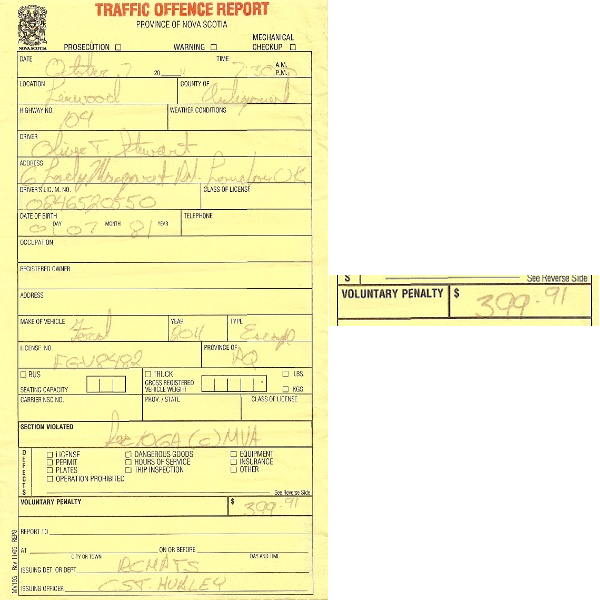 TRAFFIC OFFENCE REPORT
PROVINCE OF NOVA SCOTIA
NOVA SCOTIA
PROSECUTION □ WARNING □ MECHANICAL CHECKUP □
DATE TIME A.M.
October 7 20 11 7:30 P.M.
LOCATION COUNTY OF
Linwood Antigonish
HIGHWAY NO. WEATHER CONDITIONS
104
DRIVER
Oliver T. Stewart
ADDRESS
6 Lovely
DRIVER'S LIC. M. NO. CLASS OF LICENSE
0846520550
DATE OF BIRTH DAY MONTH YEAR TELEPHONE
01 07 81
OCCUPATION
REGISTERED OWNER
ADDRESS
MAKE OF VEHICLE YEAR TYPE
Ford 2011 Escape
LICENSE NO. PROVINCE OF
FGV8482
□ BUS □ TRUCK □ LBS.
SEATING CAPACITY GROSS REGISTERED VEHICLE WEIGHT □ KGS.
CARRIER NSC NO. PROV. / STATE CLASS OF LICENSE
SECTION VIOLATED
Sec 106A (c) MVA
DEFECTS
□ LICENSE □ DANGEROUS GOODS □ EQUIPMENT
□ PERMIT □ HOURS OF SERVICE □ INSURANCE
□ PLATES □ TRIP INSPECTION □ OTHER
□ OPERATION PROHIBITED
See Reverse Side
VOLUNTARY PENALTY $ 399.91
REPORT TO
AT ON OR BEFORE
CITY OR TOWN DAY AND TIME
ISSUING DET. OR DEPT. RCMP TS
ISSUING OFFICER CST. HURLEY
S
See Reverse Side
VOLUNTARY PENALTY $ 399.91